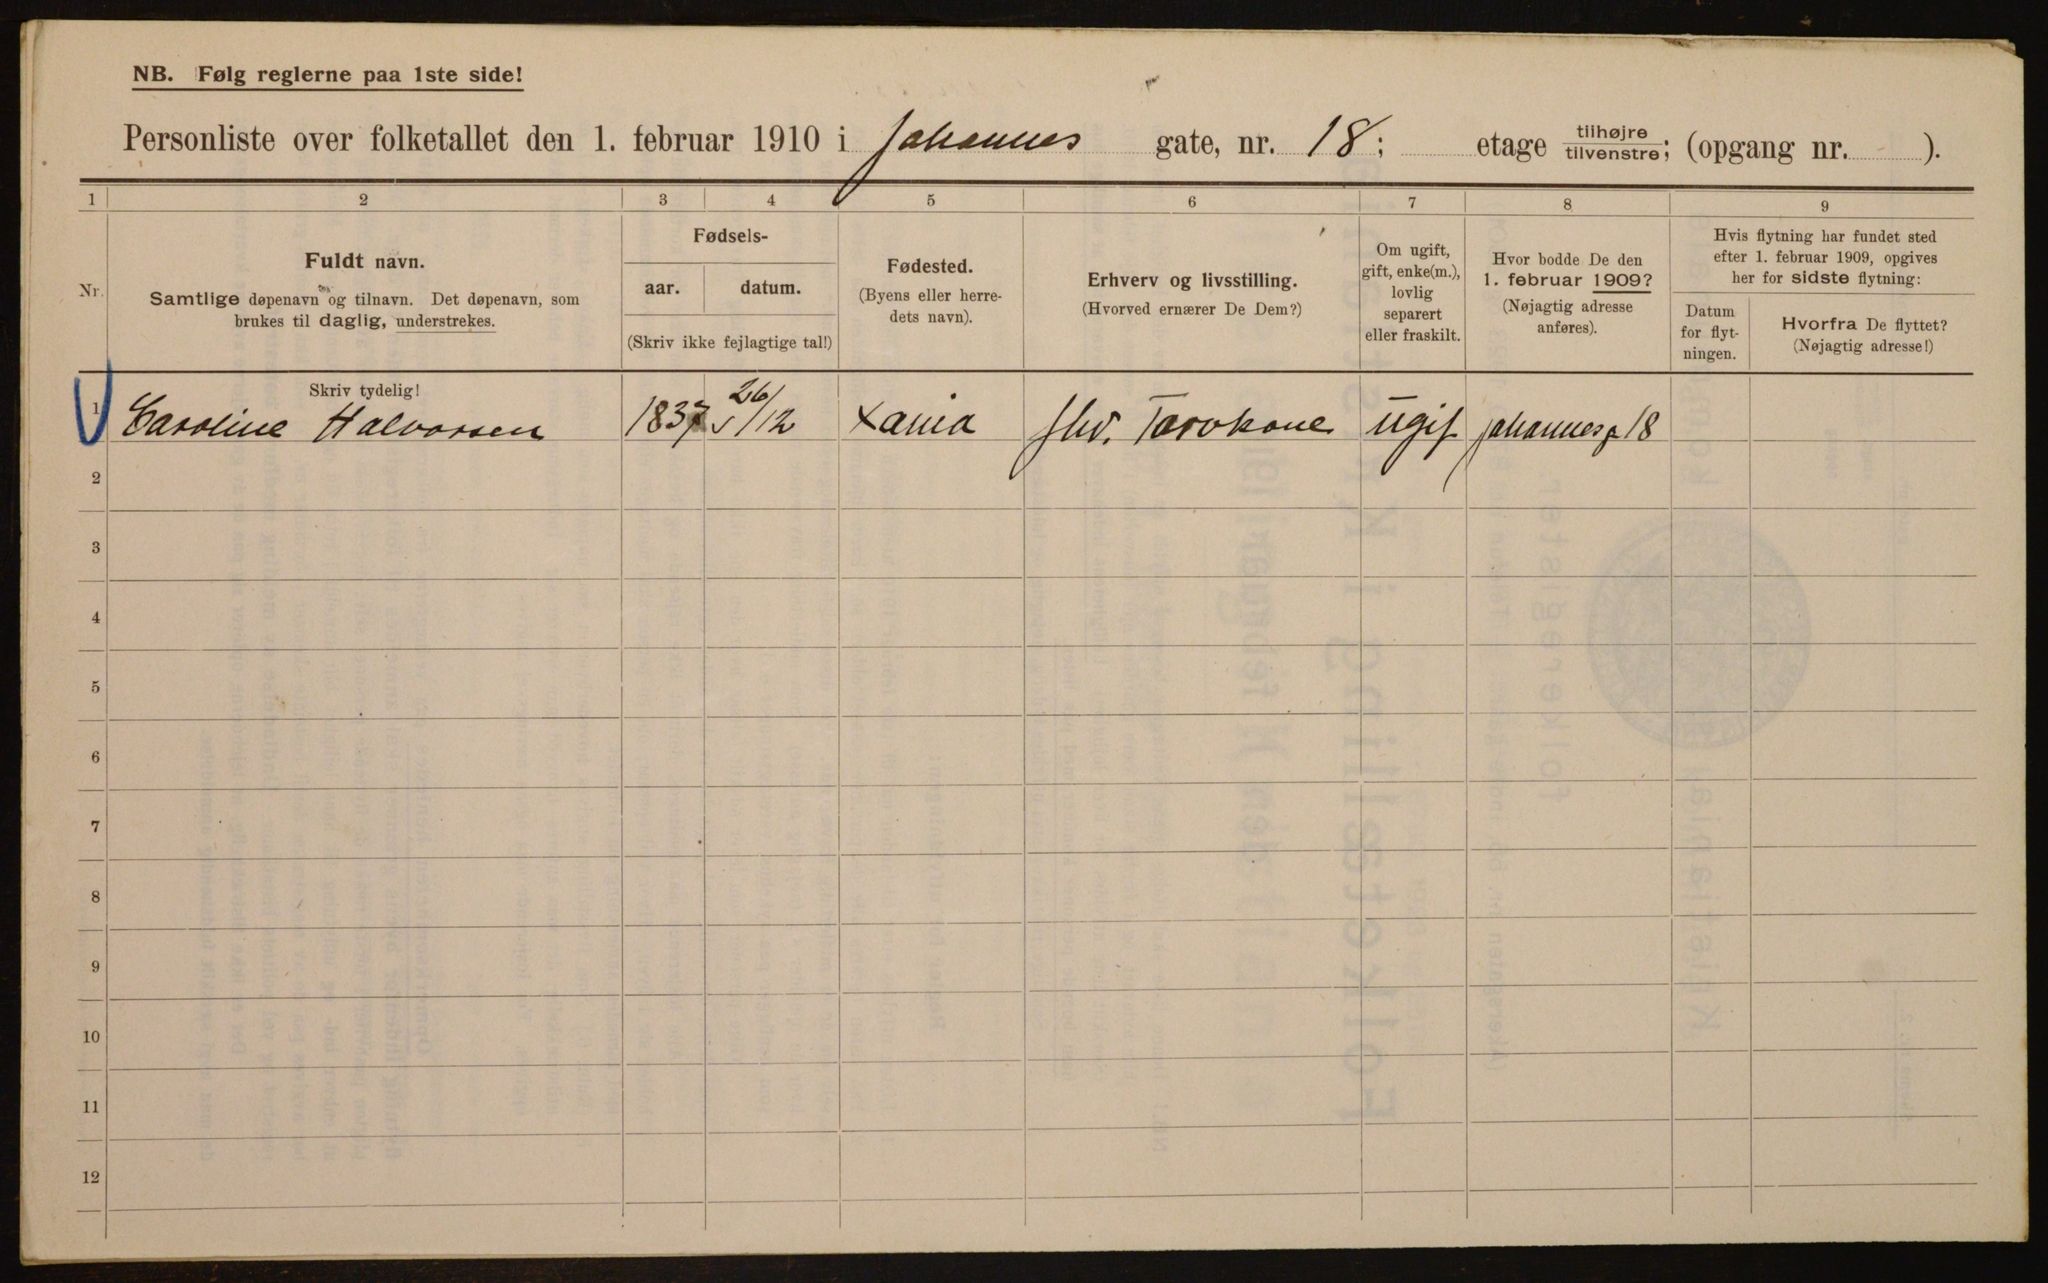 NB. Følg reglerne paa 1ste side!
Personliste over folketallet den 1. februar 1910 i Johannes gate, nr. 18; etage tilhøjre/tilvenstre; (opgang nr. ).
1 2 3 4 5 6 7 8 9
Nr.
Fuldt navn.
Samtlige døpenavn og tilnavn. Det døpenavn, som
brukes til daglig, understrekes.
Skriv tydelig!
Fødsels-
aar. datum.
(Skriv ikke fejlagtige tal!)
Fødested.
(Byens eller herre-
dets navn).
Erhverv og livsstilling.
(Hvorved ernærer De Dem?)
Om ugift,
gift, enke(m.),
lovlig
separert
eller fraskilt.
Hvor bodde De den
1. februar 1909?
(Nøjagtig adresse
anføres).
Hvis flytning har fundet sted
efter 1. februar 1909, opgives
her for sidste flytning:
Datum
for flyt-
ningen.
Hvorfra De flyttet?
(Nøjagtig adresse!)
1 Caroline Halvorsen 1837 26/12 Xania fhv. Torvkone ugif Johannesg 18
2
3
4
5
6
7
8
9
10
11
12